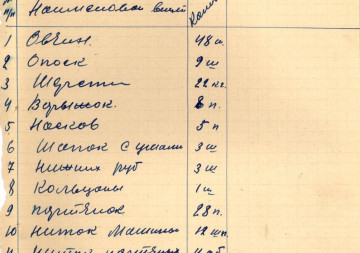 п/п Наименован вещей Колич
1 Овчин. 48 ш.
2 Опоек 9 ш
3 Шерсти 22 кг.
4 Варыжок. 8 п.
5 Насков 5 п
6 Шапок с ушами 3 ш
7 Нижних руб 3 ш
8 Кальцоны 1 ш
9 партянок 28 п.
10 Ниток Машин 12 шп.